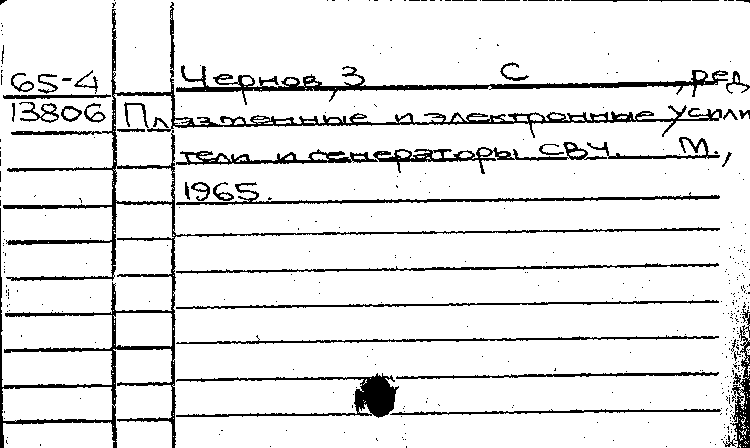 65-4 Чернов, З С , ред
13806 Плазменные и электронные усили
тели и генераторы СВЧ. М.,
1965.